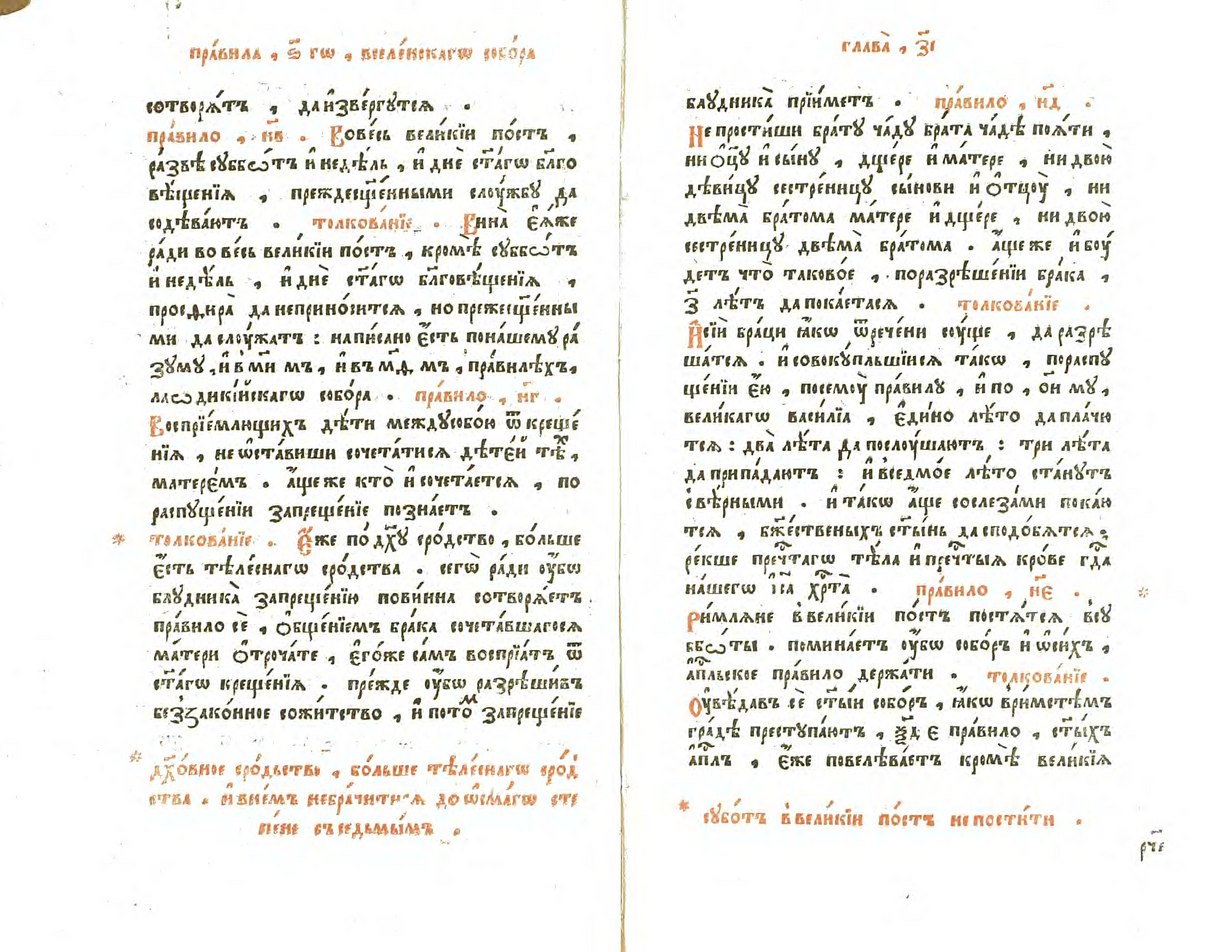 пра́вила , ѕ҃ гѡ , вселе́нскагѡ собо́ра
сотворѧ́тъ , да и҆зве́ргꙋтсѧ .
пра́вило , н҃в . Во ве́сь вели́кїи по́стъ ,
ра́звѣ сꙋббѡ́тъ и҆ недѣ́ль , и҆ днѐ ст҃а́гѡ бл҃го
вѣ́щенїѧ , преждесщ҃е́нными слоу́жбꙋ да
содѣва́ютъ . толкова́нїе . Вина̀ є҆ѧ́же
ра́ди во ве́сь вели́кїи по́стъ , кромѣ̀ сꙋббѡ́тъ
и҆ недѣ́ль , и҆ днѐ ст҃а́гѡ бл҃говѣ́щенїѧ ,
просфира̀ да не прино́ситсѧ , но прежесщ҃е́нны
ми да слоу́жатъ : напи́сано є҆́сть по на́шемꙋ ра́
зꙋмꙋ , и҆ в м҃и мъ , и҆ въ м҃ѳ мъ , пра́вилѣхъ ,
лаѡдикі́йскагѡ собо́ра . пра́вило , н҃г .
Воспрїе́млющихъ дѣ́ти междꙋ собо́ю ѿ креще́
нїѧ , не ѡ҆ста́виши сочета́тисѧ дѣте́й тѣ́х ,
ма́терємъ . а҆́ще же кто̀ и҆ сочета́етсѧ , по
распꙋще́нїи запреще́нїе позна́етъ .
толкова́нїе . Є҆́же по дх҃ꙋ сро́дство , бо́льше
є҆́сть тѣле́снагѡ сро́дства . сегѡ̀ ра́ди оу҆́бѡ
блꙋдника̀ запреще́нїю пови́нна сотворѧ́етъ
пра́вило сѐ , ѻ҆бще́нїемъ бра́ка сочета́вшагосѧ
ма́тери ѻ҆троча́те , є҆го́же са́мъ воспрїѧ́тъ ѿ
ст҃а́гѡ креще́нїѧ . пре́жде оу҆́бѡ разрѣши́въ
беззако́нное сожи́тство , и҆ пото́м запреще́нїе
дх҃о́вное сро́дьство , бо́льше тѣле́снагѡ сро́д
ства . и҆ в не́мъ небра́читисѧ до ѡ҆смагѡ сте́
пене съ седьмы́мъ .
глава̀ , з҃і
блꙋдника̀ прїи́метъ . пра́вило , н҃д .
Не прости́ши бра́тꙋ ча́дꙋ бра́та ча́дѣ поѧ́ти ,
ни ѻ҆ц҃ꙋ̀ и҆ сы́нꙋ , дще́ре и҆ ма́тере , ни двою̀
дѣви́цꙋ сестре́ницꙋ сы́нови и҆ ѻ҆тцоу̀ , ни
двѣма̀ бра́тома ма́тере и҆ дще́ре , ни двою̀
сестре́ницꙋ двѣма̀ бра́тома . а҆́ще же и҆ боу́
детъ что̀ таково́е , по разрѣше́нїи бра́ка ,
з҃ лѣ́тъ да пока́етасѧ . толкова́нїе .
И҆ сїѝ бра́ци ꙗ҆́кѡ ѿрече́ни соу́ще , да разрѣ
ша́тсѧ . и҆ совокꙋ́пльшїисѧ та́кѡ , по распꙋ
ще́нїи є҆ю̀ , по семоу̀ пра́вилꙋ , и҆ по , ѻ҆и мꙋ ,
вели́кагѡ васи́лїа , є҆ди́но лѣ́то да пла́чю
тсѧ : два̀ лѣ́та да послоу́шаютъ : три лѣ́та
да припа́даютъ : и҆ в седмо́е лѣ́то ста́нꙋтъ
с вѣ́рными . и҆ та́кѡ а҆́ще со слеза́ми пока́ю
тсѧ , бж҃е́ственыхъ ст҃ы́нь да сподо́бѧтсѧ ,
ре́кше преч҃тагѡ тѣ́ла и҆ преч҃тыѧ кро́ве гд҃а
на́шегѡ і҆с҃а хр҃та̀ . пра́вило , н҃є .
Ри́млѧне в вели́кїи по́стъ постѧ́тсѧ в сꙋ
ббѡ́ты . помина́етъ оу҆́бѡ собо́ръ и҆ ѡ҆ си́хъ ,
а҆п҃льское пра́вило держа́ти . толкова́нїе .
Оу҆вѣ́давъ сѐ ст҃ы́и собо́ръ , ꙗ҆́кѡ в ри́мстѣмъ
гра́дѣ престꙋпа́ютъ , ѯ҃д є пра́вило , ст҃ы́хъ
а҆п҃лъ , є҆́же повелѣва́етъ кромѣ̀ вели́кїѧ
сꙋбо́тъ в вели́кїи по́стъ не пости́ти .
рч҃е